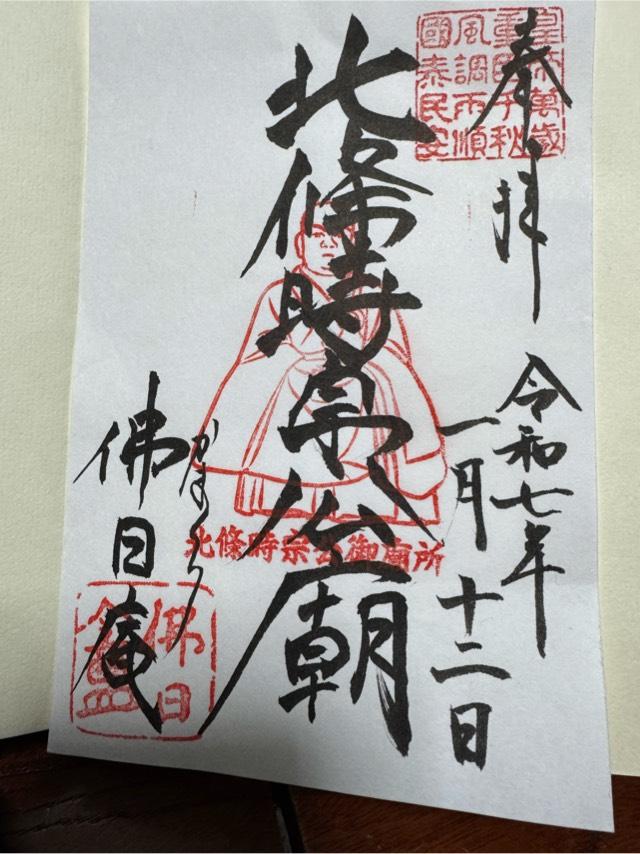 奉拝
皇帝萬歳
重臣千秋
風調雨順
國泰民安
令和七年
一月十二日
北條時宗公廟
北條時宗公御廟所
かまくら
佛日庵
佛日